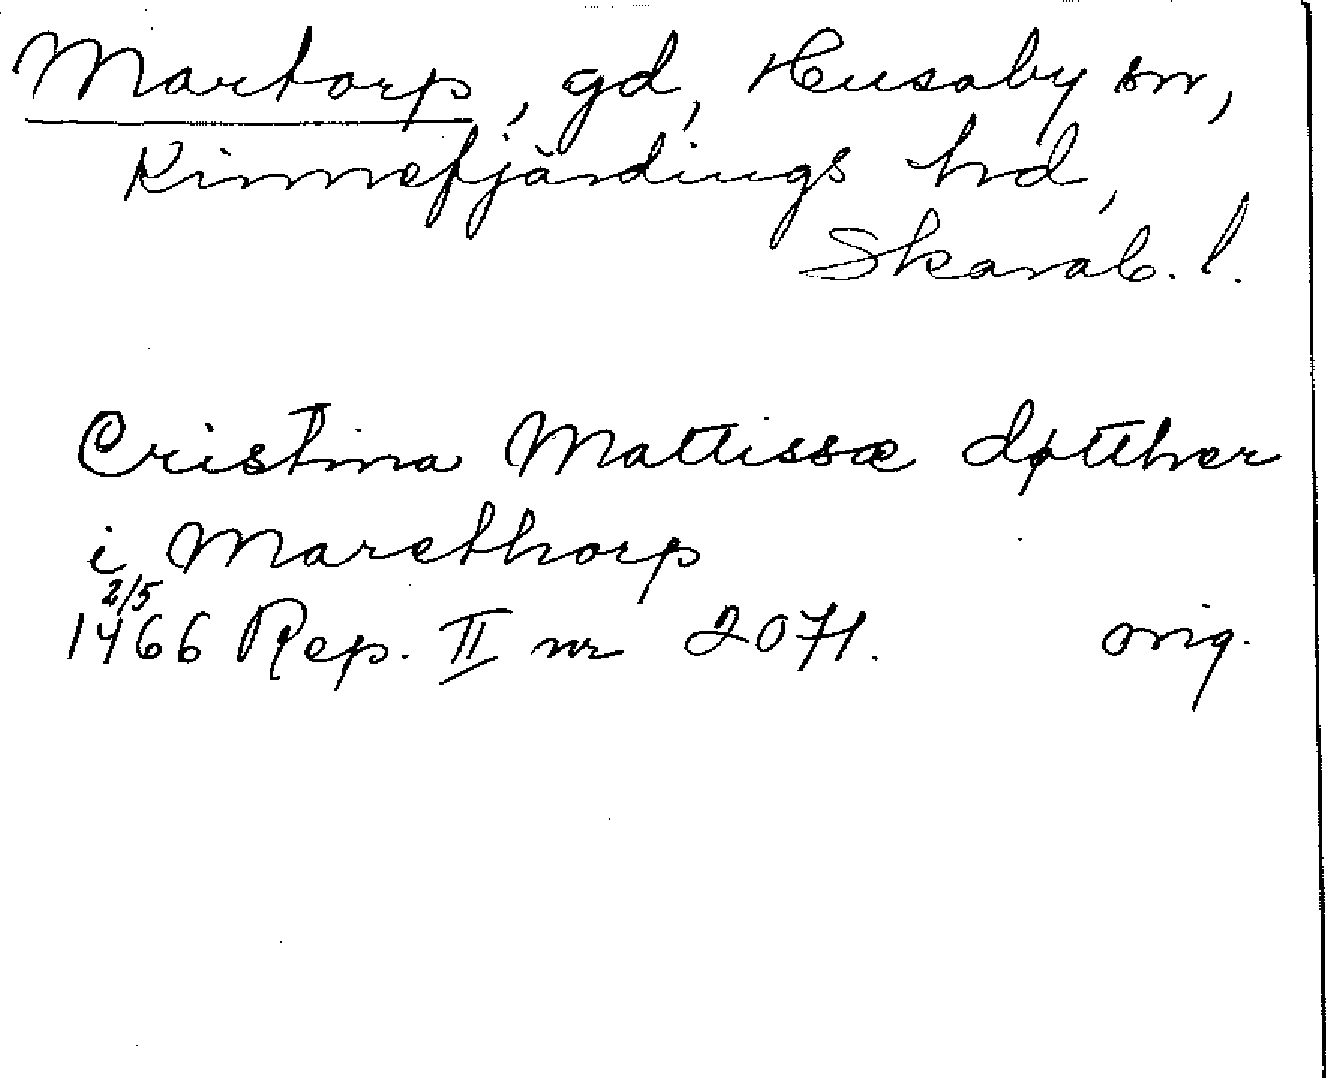 Martorp, gd, Husaby sn,
Kinnefjärdings hd,
Skarab. l.
Cristina Mattissæ døtther
i Marethorp
2/5
1466 Rep. II nr 2071. orig.